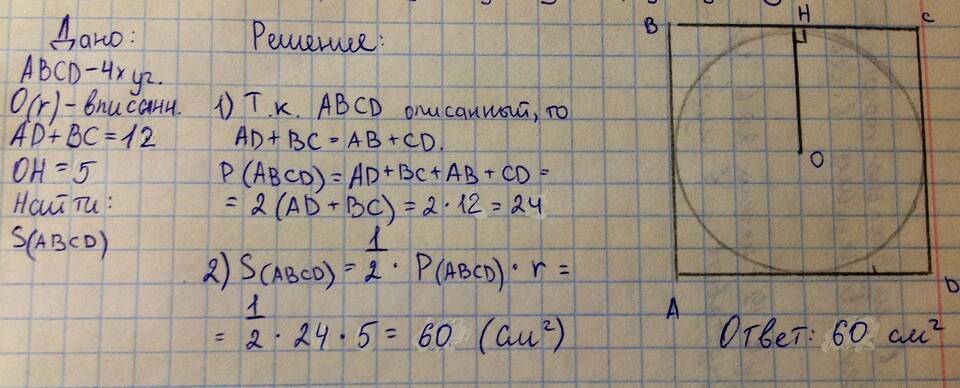 Дано:
ABCD – 4х уг.
O(r) – вписанн.
AD + BC = 12
OH = 5
Найти:
S(ABCD)
Решение:
1) Т.к. ABCD описанный, то
AD + BC = AB + CD.
P(ABCD) = AD + BC + AB + CD =
= 2 (AD + BC) = 2 · 12 = 24
2) S(ABCD) = 1/2 · P(ABCD) · r =
= 1/2 · 24 · 5 = 60 (см²)
B
H
C
O
A
D
Ответ: 60 см²